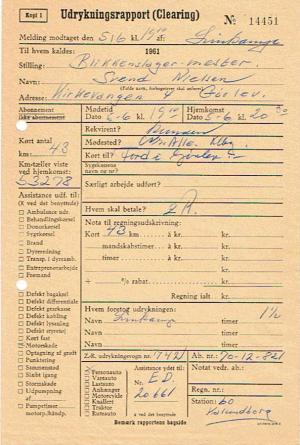 Kopi 1
Udrykningsrapport (Clearing)
№ 14451
Melding modtaget den 5/6 kl. 19 10 af
Til hvem kaldes: 1961
Stilling: Blikkenslager-mester
Navn: Svend Nielsen
(Fulde navn, forbogstaver skal anføres)
Adresse: Kirkevangen 4 Gørlev.
Abonnement
Ikke abonnement
Mødetid
Dato 5-6 kl. 19
Hjemkomst
Dato 5-6 kl. 20 30
Kørt antal km: 43
Rekvirent?
Mødested?
Kørt til?
Sygekassens navn og nr.
Km-tæller viste ved hjemkomst:
53278
Særligt arbejde udført?
Assistance ud. til
(X ved det benyttede)
Hvem skal betale? Z.R.
Ambulance udr.
Behandlerkørsel
Donorkørsel
Sygekørsel
Brand
Dyreredning
Transp. i dyreamb.
Entreprenørarbejde
Fremand
Nota til regningsudskrivning:
Kørt 43 km à kr. kr.
mandskabstimer à kr. kr.
timer à kr. kr.
kr.
+ °/₀ rabat kr.
Regning ialt kr.
Defekt bagaksel
Defekt differentiale
Defekt gearkasse
Defekt kobling
Defekt lysanlæg
Defekt styretøj
Kørt fast
Motorskade
Optagning af grøft
Punktering
Sammenstød
Slæbt igang
Startskade
Udpumpning af
Pumpetimer
motorp./håndp.
Hvem foretog udrykningen: 1½
Navn timer
Navn timer
Navn timer
Z-R. udrykningsvogn nr. 7421
Ab. nr. 70-12-821
Personauto
Vareauto
Lastauto
Anhænger
Motorcykle
Knallert
Traktor
Rutebil
Assistance ydet til:
Vogn nr.: E.D.
20661
x ved det benyttede
Notat vedr. ab.
Regn. nr.
Station: 60
Kalundborg
Bemærk rapportens bagside